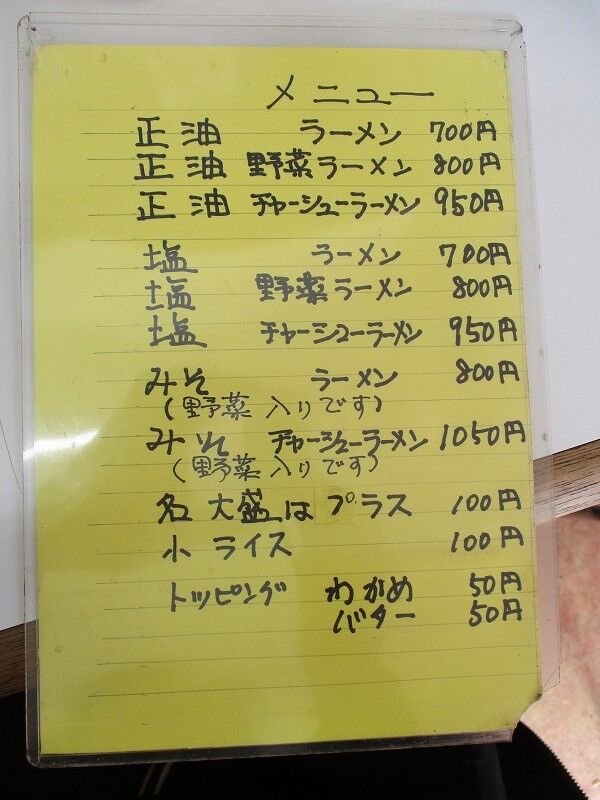 メニュー
正油 ラーメン 700円
正油 野菜ラーメン 800円
正油 チャーシューラーメン 950円
塩 ラーメン 700円
塩 野菜ラーメン 800円
塩 チャーシューラーメン 950円
みそ ラーメン 800円
(野菜入りです)
みそ チャーシューラーメン 1050円
(野菜入りです)
各 大盛は プラス 100円
小 ライス 100円
トッピング わかめ 50円
バター 50円